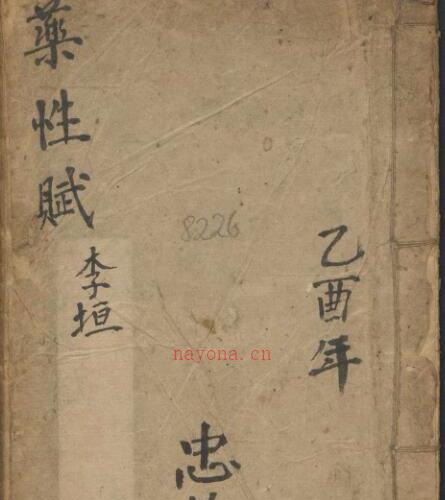 乙酉年
藥性賦
李垣
8226
nayona.cn
忠